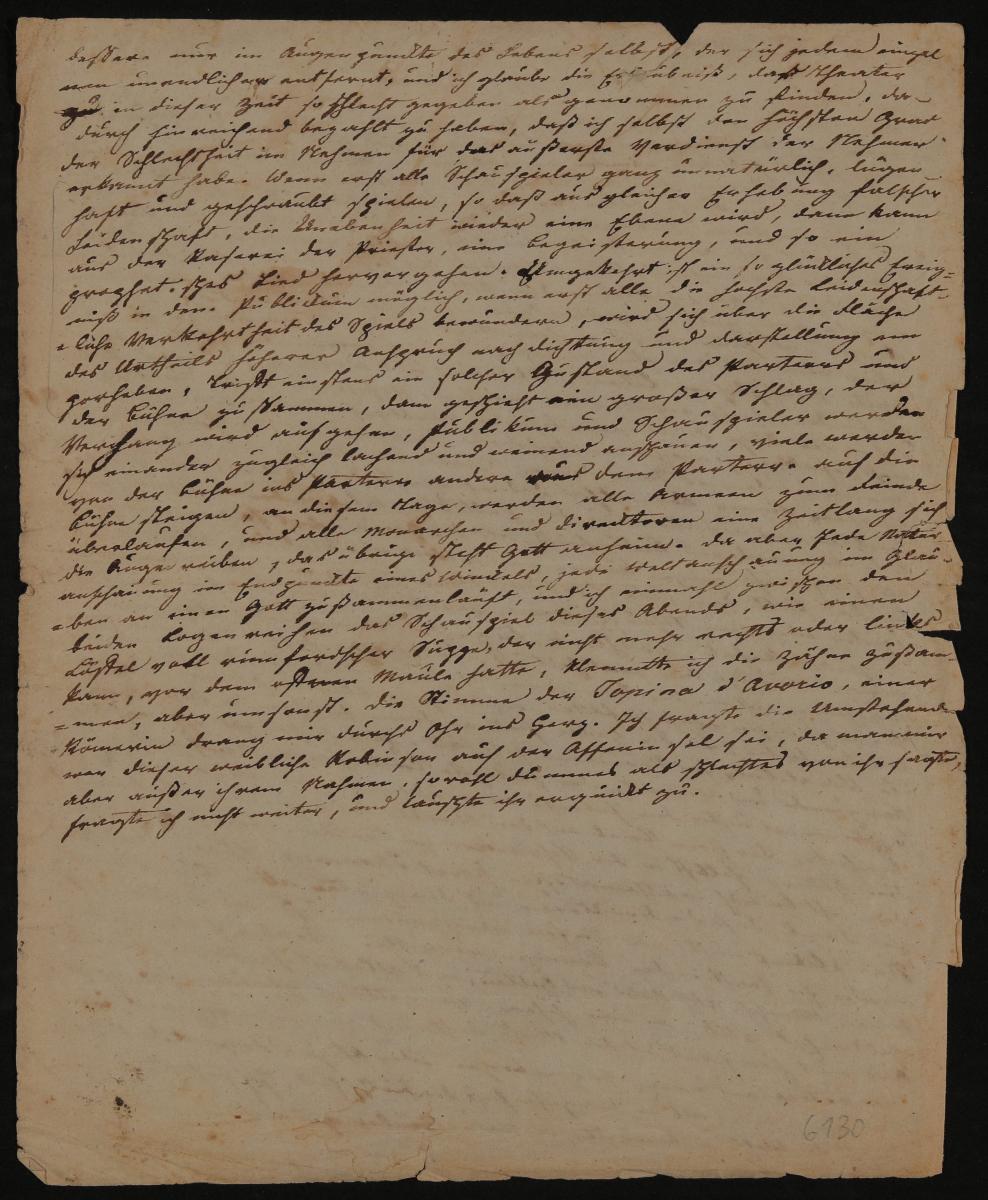 bessere nur im Augenpunkte des Lebens selbst, der sich jedem einzel
nen unendlicher entfernt, und ich glaube die Erlaubniß, das Theater
zu in dieser Zeit so schlecht gegeben als genommen zu finden, da-
durch hinreichend bezahlt zu haben, daß ich selbst den höchsten Grad
der Schlechtheit im Nehmen für das äußerste Verdienst der Nehmer
erkannt habe. Wenn erst alle Schauspieler ganz unnatürlich, lügen-
haft und geschraubt spielen, so daß aus gleicher Erhebung falscher
Leidenschaft, die Unebenheit wieder eine Ebene wird, dann kann
aus der Raserei der Priester, eine Begeisterung, und so ein
prophetisches Lied hervorgehen. Umgekehrt ist ein so glückliches Ereig=
niß in dem Publikum möglich, wenn erst alle die hochste Leidenschaft-
=liche Verkehrtheit des Spiels bewundern, wird sich über die Fläche
des Urtheils höherer Anspruch nach Dichtung und Darstellung em
porheben, trifft einstens ein solcher Zustand des Parterrs und
der Bühne zusammen, dann geschieht ein großer Schlag, der
Vorhang wird aufgehen, Publikum und Schauspieler werden
sich einander zugleich lachend und weinend anschauen, viele werden
von der Bühne ins Parterre andere aus dem Parterre auf die
Bühne steigen, an diesem Tage, werden alle Armeen zum Feinde
überlaufen, und alle Monarchen und Direcktoren eine Zeitlang sich
die Augen reiben, das übrige steht Gott anheim. Da aber jede Natur
anschauung im Endpunkte eines Winkels, jede Weltanschauung im Glau-
=ben an einen Gott zusammenläuft, und ich einmahl zwischen den
beiden Logenreihen das Schauspiel dieses Abends, wie einen
Löffel voll rumfordscher Suppe, der nicht mehr rechts oder links
kann, vor dem offenen Maule hatte, klemmte ich die Zähne zusam-
=men, aber umsonst. Die Stimme der Topina d'Avorio, einer
Römerin drang mir durchs Ohr ins Herz. Ich fragte die Umstehenden
wer dieser weibliche Robinson auf der Affeninsel sei, da man mir
aber außer ihrem Nahmen, sowohl dummes als schlechtes von ihr sagte,
fragte ich nicht weiter, und lauschte ihr erquickt zu.
6130